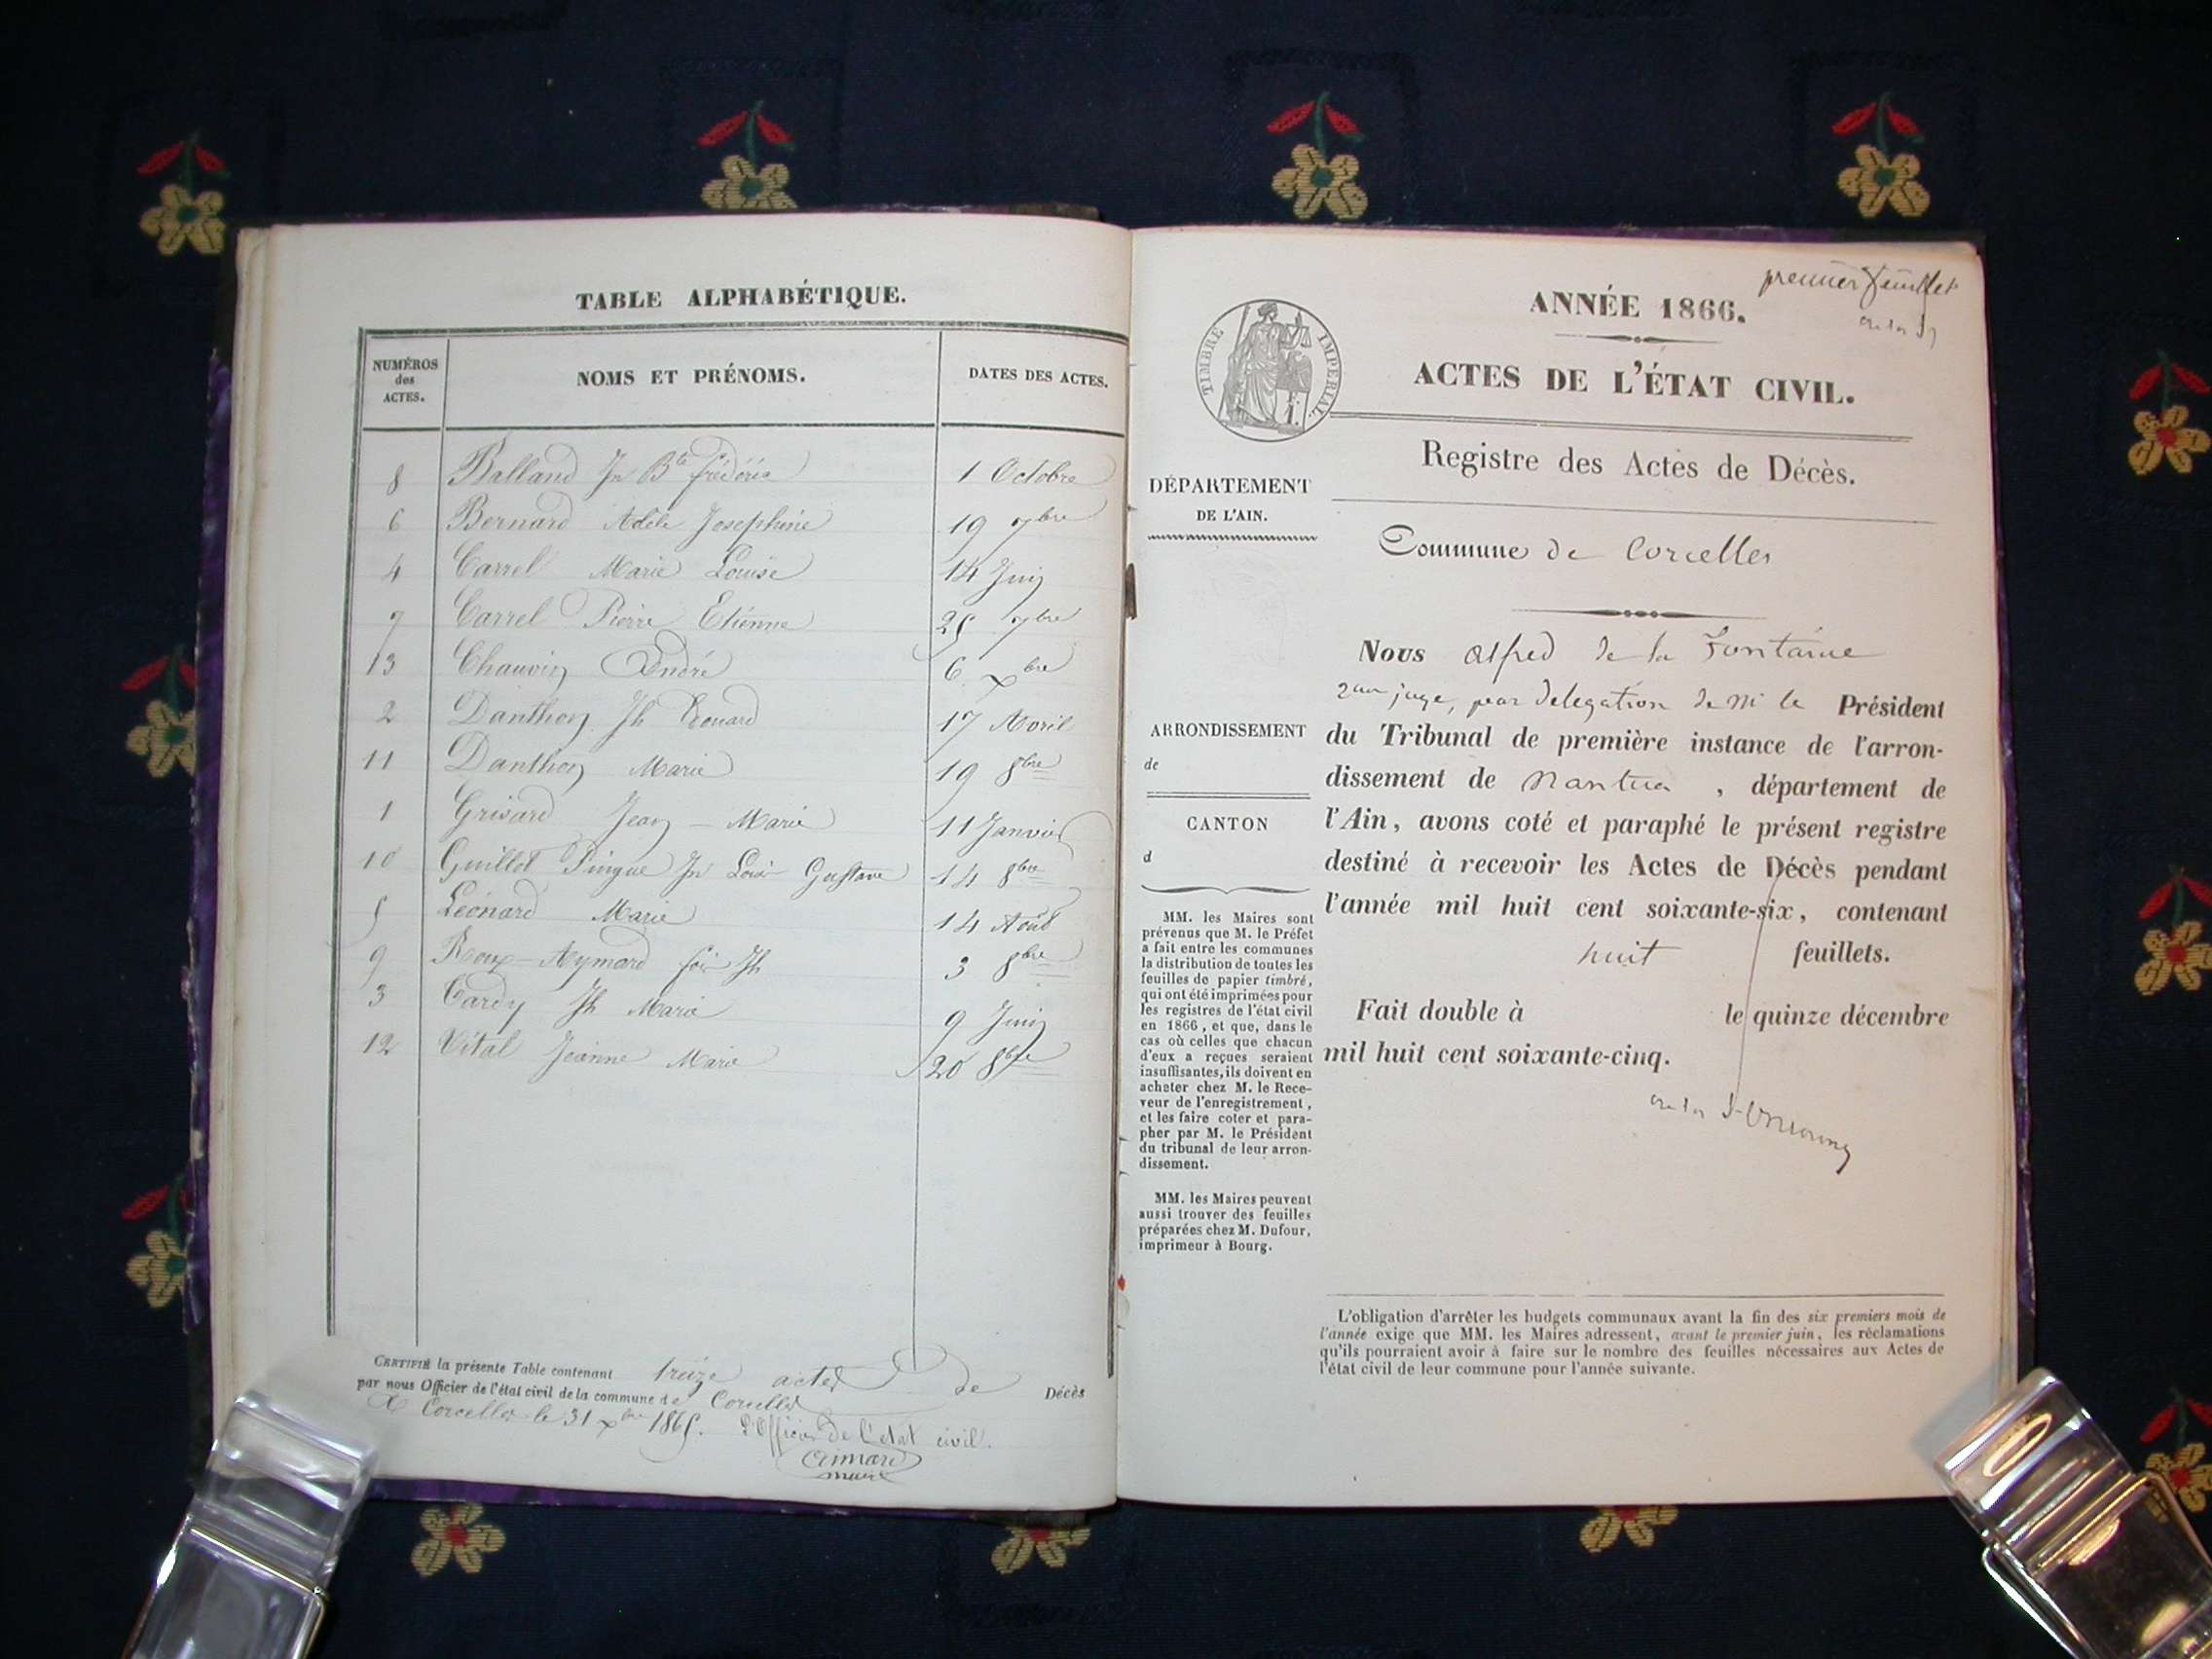 TABLE ALPHABÉTIQUE.
NUMÉROS
des
ACTES.
NOMS ET PRÉNOMS.
DATES DES ACTES.
8 Balland Jn Bte frédéric 1 Octobre
6 Bernard Adèle Josephine 19 7bre
4 Carrel Marie Louise 14 Juin
7 Carrel Pierre Etienne 25 7bre
13 Chauvin André 6 xbre
2 Danthon Jh Edouard 17 Avril
11 Danthon Marie 19 8bre
1 Grisard Jean-Marie 11 Janvier
10 Guillot Pingue Jn Louis Gustave 14 8bre
5 Léonard Marie 14 Août
9 Roux-Aymard Jh 3 8bre
3 Jh Marie 9 Juin
12 Vital Jeanne Marie 20 8bre
CERTIFIÉ la présente Table contenant treize actes de Décès
par nous Officier de l'état civil de la commune de Corcelles
A Corcelles le 31 xbre 1865. L'Officier de l'état civil.
maire
premier feuillet
ANNÉE 1866.
TIMBRE IMPERIAL
ACTES DE L'ÉTAT CIVIL.
Registre des Actes de Décès.
DÉPARTEMENT
DE L'AIN.
Commune de Corcelles
Nous alfred de la Fontaine
juge, par delegation de M le Président
ARRONDISSEMENT
de
du Tribunal de première instance de l'arron-
dissement de Nantua, département de
CANTON
d
l'Ain, avons coté et paraphé le présent registre
destiné à recevoir les Actes de Décès pendant
l'année mil huit cent soixante-six, contenant
huit feuillets.
Fait double à le quinze décembre
mil huit cent soixante-cinq.
MM. les Maires sont
prévenus que M. le Préfet
a fait entre les communes
la distribution de toutes les
feuilles de papier timbré,
qui ont été imprimées pour
les registres de l'état civil
en 1866, et que, dans le
cas où celles que chacun
d'eux a reçues seraient
insuffisantes, ils doivent en
acheter chez M. le Rece-
veur de l'enregistrement,
et les faire coter et para-
pher par M. le Président
du tribunal de leur arron-
dissement.
MM. les Maires peuvent
aussi trouver des feuilles
préparées chez M. Dufour,
imprimeur à Bourg.
L'obligation d'arrêter les budgets communaux avant la fin des six premiers mois de
l'année exige que MM. les Maires adressent, avant le premier juin, les réclamations
qu'ils pourraient avoir à faire sur le nombre des feuilles nécessaires aux Actes de
l'état civil de leur commune pour l'année suivante.